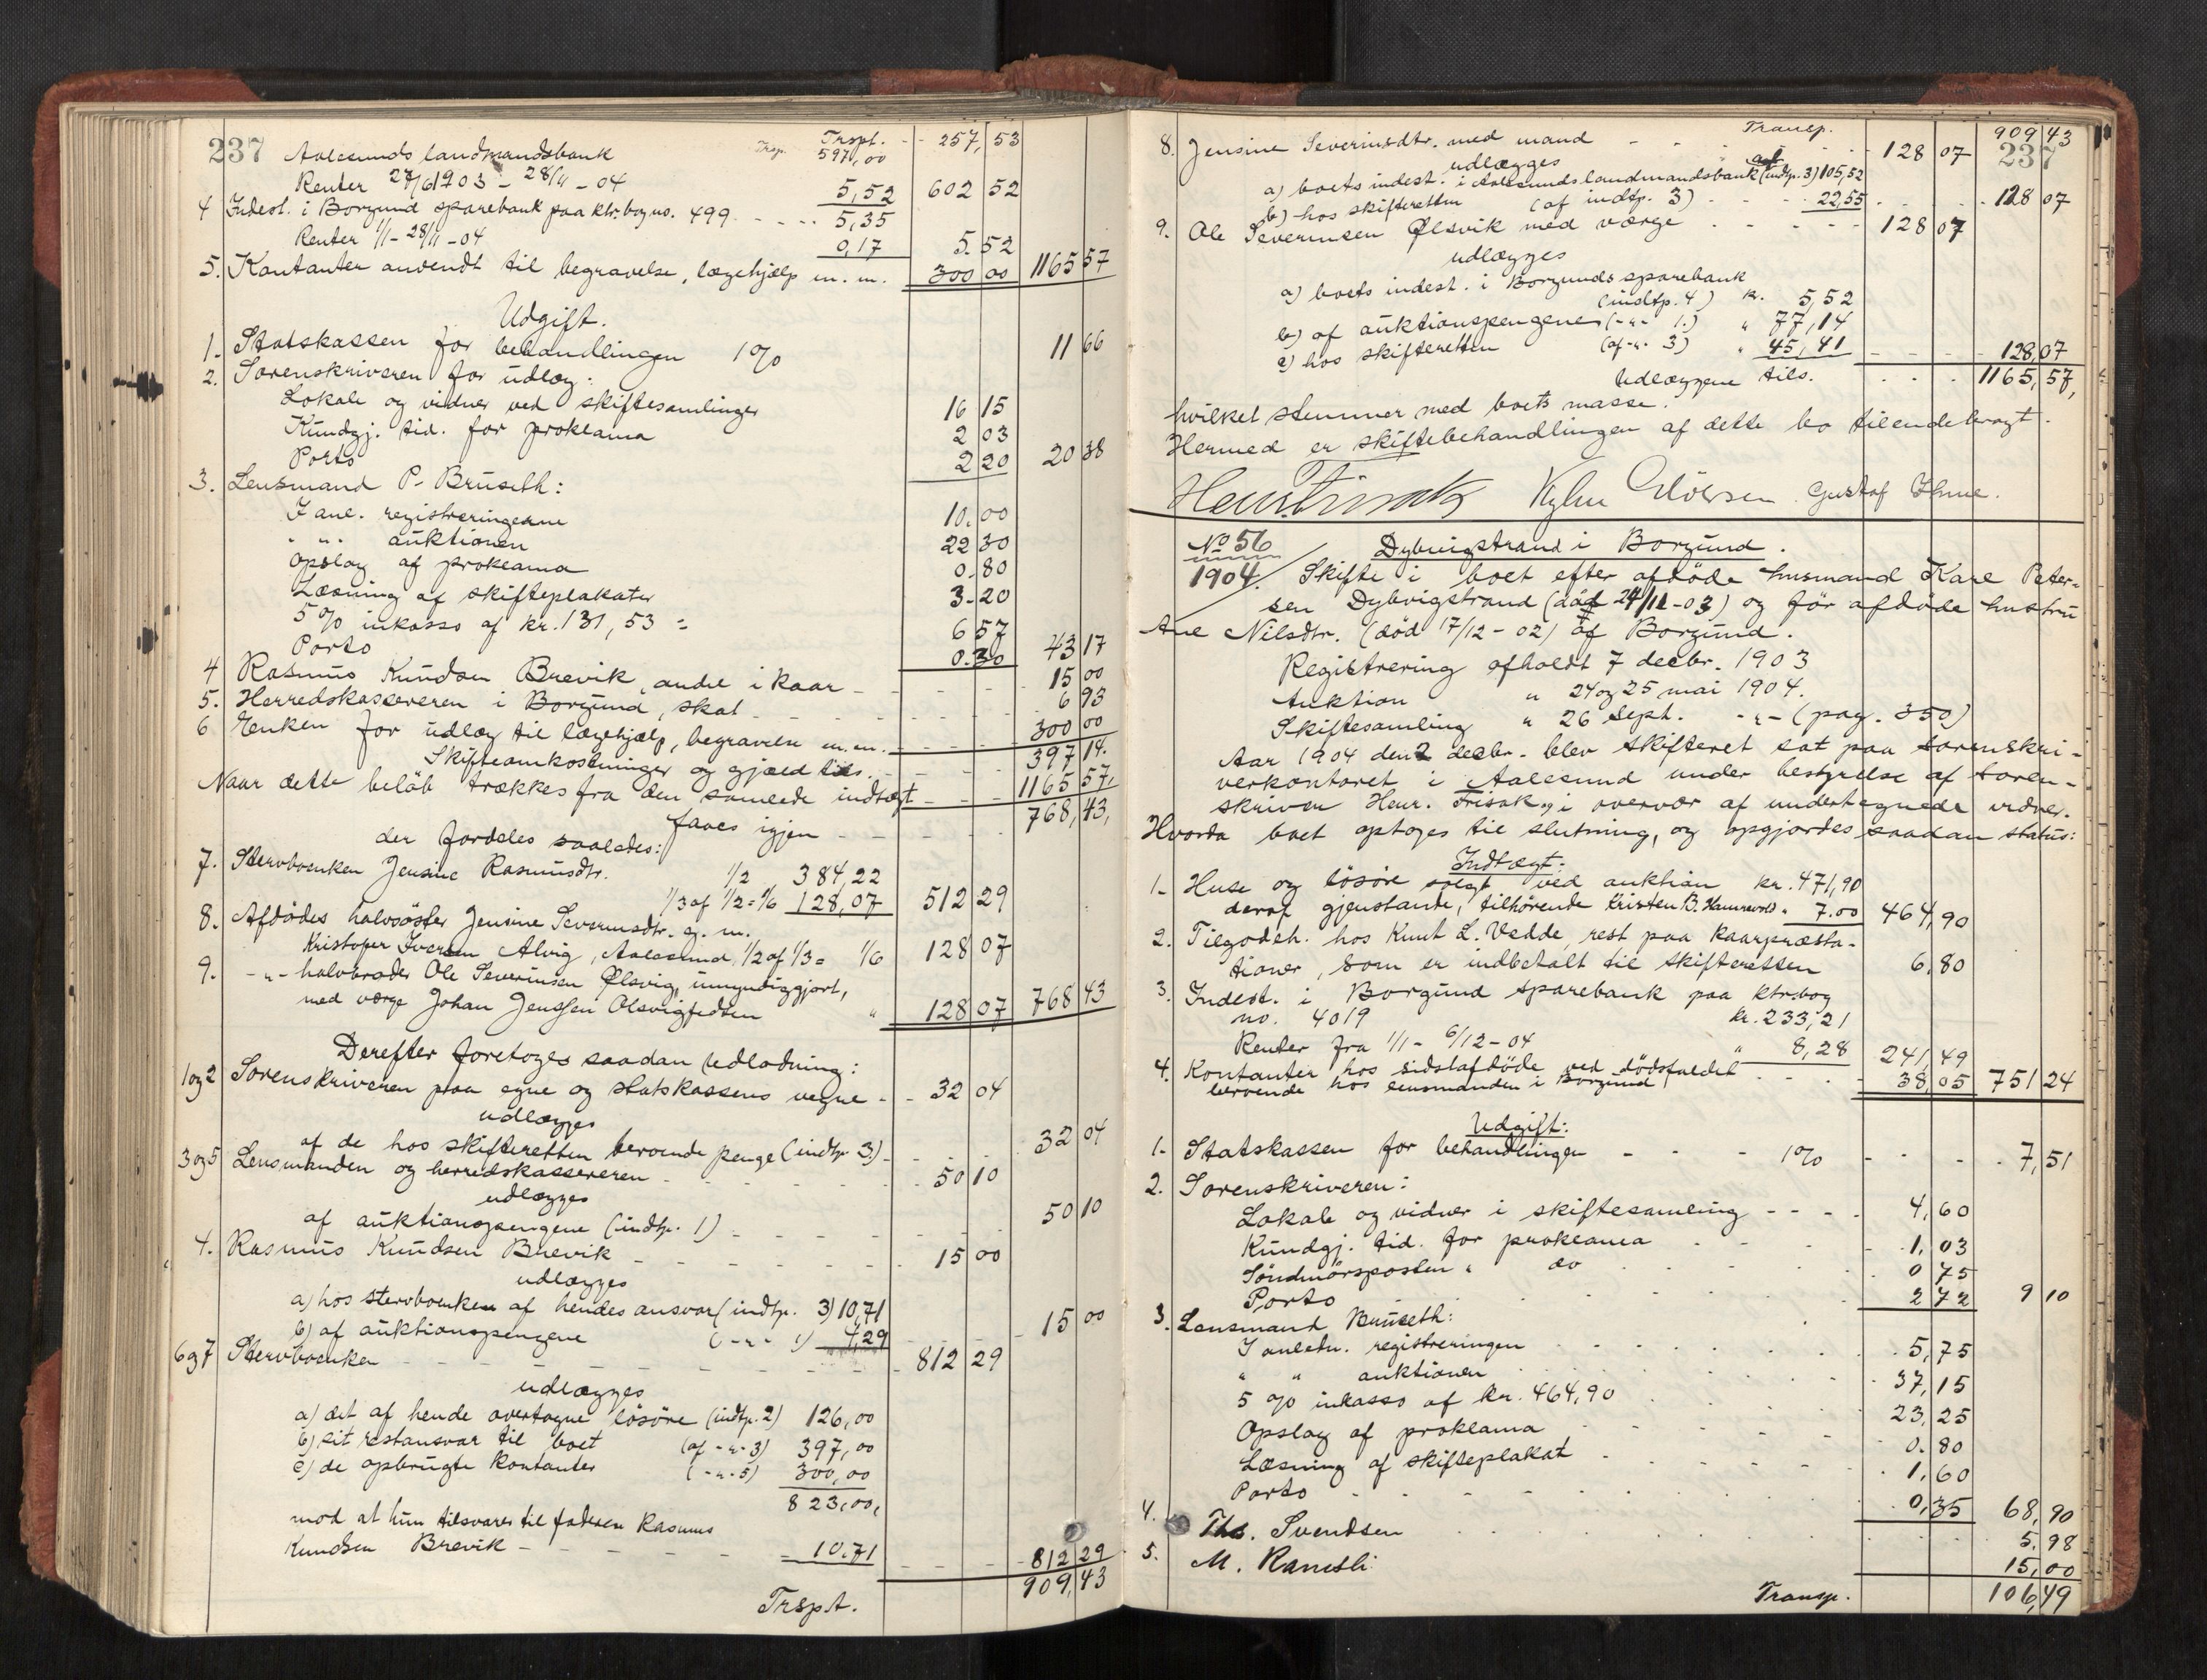 237
Trspt. - - 257,53
Aalesunds landmandsbank Trsp. 597,00
Renter 27/6 1903 - 28/11 - 04 5,52 602 52
4 Indest. i Borgund sparebank paa ktr.bog no. 499 - - - - 5,35
Renter 1/1 - 28/11 - 04 0,17 5.52
5. Kontanter anvendt til begravelse, lægehjælp m.m. 300 00 1165 57
Udgift.
1. Statskassen for behandlingen 1% 11 66
2. Sorenskriveren for udlæg:
Lokale og vidner ved skiftesamlinger 16 15
Kundgj. tid. for proklama 2 03
Porto 2 20 20 38
3. Lensmand P. Bruseth:
I anl. registreringerne 10.00
" " auktionen 22 30
Opslag af proklama 0.80
Læsning af skifteplakater 3.20
5% inkasso af kr. 131,53 = 6 57
Porto 0.30 43 17
4 Rasmus Knudsen Brevik, andel i kaar - - - - 15 00
5. Herredskassereren i Borgund, skat - - - - 6 93
6 Enken for udlæg til lægehjælp, begravelse m.m. - - - 300 00
Skifteomkostninger og gjæld tils. - - - 397 14.
Naar dette beløb trækkes fra den samlede indtægt - - - 1165 57,
faaes igjen - - - 768,43,
der fordeles saaledes:
7. Stervboenken Jensine Rasmusdtr. 1/2 384,22
1/3 af 1/2 = 1/6 128,07 512 29
8. Afdødes halvsøster Jensine Severinsdtr. g. m.
Kristofer Iversen Alvig, Aalesund, 1/2 af 1/3 = 1/6 128 07
9. - " - halvbroder Ole Severinsen Ølsvig, umyndiggjort,
med værge Johan Jenssen Olsvigfedten " 128 07 768 43
Derefter foretoges saadan udlodning:
1og2 Sorenskriveren paa egne og statskassens vegne - - 32 04
udlægges
af de hos skifteretten beroende penge (indtp. 3) - - - 32 04
3og5 Lensmanden og herredskassereren - - - - 50 10
udlægges
af auktionspengene (indtp. 1) - - - - 50 10
4. Rasmus Knudsen Brevik - - - - 15 00
udlægges
a) hos stervboenken af hendes ansvar (indtp. 3) 10,71
b) af auktionspengene (- " - 1) 4,29 - - - 15 00
6og7 Stervboenken - - - - 812 29
udlægges
a) det af hende overtagne løsøre (indtp. 2) 126,00
b) sit restansvar til boet (af - " - 3) 397,00
c) de opbrugte kontanter (- " - 5) 300,00
823,00,
mod at hun tilsvarer til faderen Rasmus
Knudsen Brevik - - - - = 10.71 - - - 812 29
Trspt. 909,43
Transp. 909 43
237
8. Jensine Severinsdtr. med mand - - - - 128 07
udlægges
a) boets indest. i Aalesunds landmandsbank (af indtp. 3) 105,52
b) hos skifteretten (af indtp. 3) - - - 22,55 - - - 128 07
9. Ole Severinsen Ølsvik med værge - - - - 128 07
udlægges
a) boets indest. i Borgunds sparebank
(indtp. 4) kr. 5,52
b) af auktionspengene (- " - 1.) " 77,14
c) hos skifteretten (af - " - 3) " 45,41 - - - 128,07
Udlæggene tils. - - - 1165,57,
hvilket stemmer med boets masse.
Hermed er skiftebehandlingen af dette bo tilendebragt.
Henr. Frisak Gustaf
No 56
1904.
Dybvigstrand i Borgund.
Skifte i boet efter afdøde husmand Karl Peter-
sen Dybvigstrand (død 24/11-03) og før afdøde hustru
Ane Nilsdtr. (død 17/12 - 02) af Borgund.
Registrering afholdt 7 decbr. 1903
Auktion " 24 og 25 mai 1904.
Skiftesamling " 26 Sept. - " - (pag. 350)
Aar 1904 den 2 decbr. blev skifteret sat paa sorenskri-
verkontoret i Aalesund under bestyrelse af soren-
skriver Henr. Frisak, i overvær af undertegnede vidner.
Hvorda boet optoges til slutning, og opgjordes saadan status:
Indtægt:
1. Huse og løsøre solgt ved auktion kr. 471,90
deraf gjenstande, tilhørende Kristen B. Hammervold " 7.00 464,90
2. Tilgodeh. hos Knut L. Vedde, rest paa kaarpræsta-
tioner, som er indbetalt til skifteretten 6,80
3. Indest. i Borgund sparebank paa ktr.bog
no. 4019 kr. 233,21
Renter fra 1/1 - 6/12 - 04 " 8,28 241,49
4. Kontanter hos sidstafdøde ved dødsfaldet
beroende hos lensmanden i Borgund - - - 38,05 751 24
Udgift:
1. Statskassen for behandlingen - - - 1% - - - 7,51
2. Sorenskriveren:
Lokale og vidner i skiftesamling - - - - 4,60
Kundgj. tid. for proklama - - - 1,03
Søndmørsposten " do - - - 0 75
Porto - - - 2 72 9 10
3. Lensmand Bruseth:
I anledn. registreringen - - - 5,75
" " auktionen - - - 37,15
5% inkasso af kr. 464,90 - - - 23,25
Opslag af proklama - - - 0.80
Læsning af skifteplakat - - - 1,60
Porto - - - 0,35 68,90
4. Ths. Svendsen - - - 5.98
5. M. Ranesli 15,00
Transp. 106,49